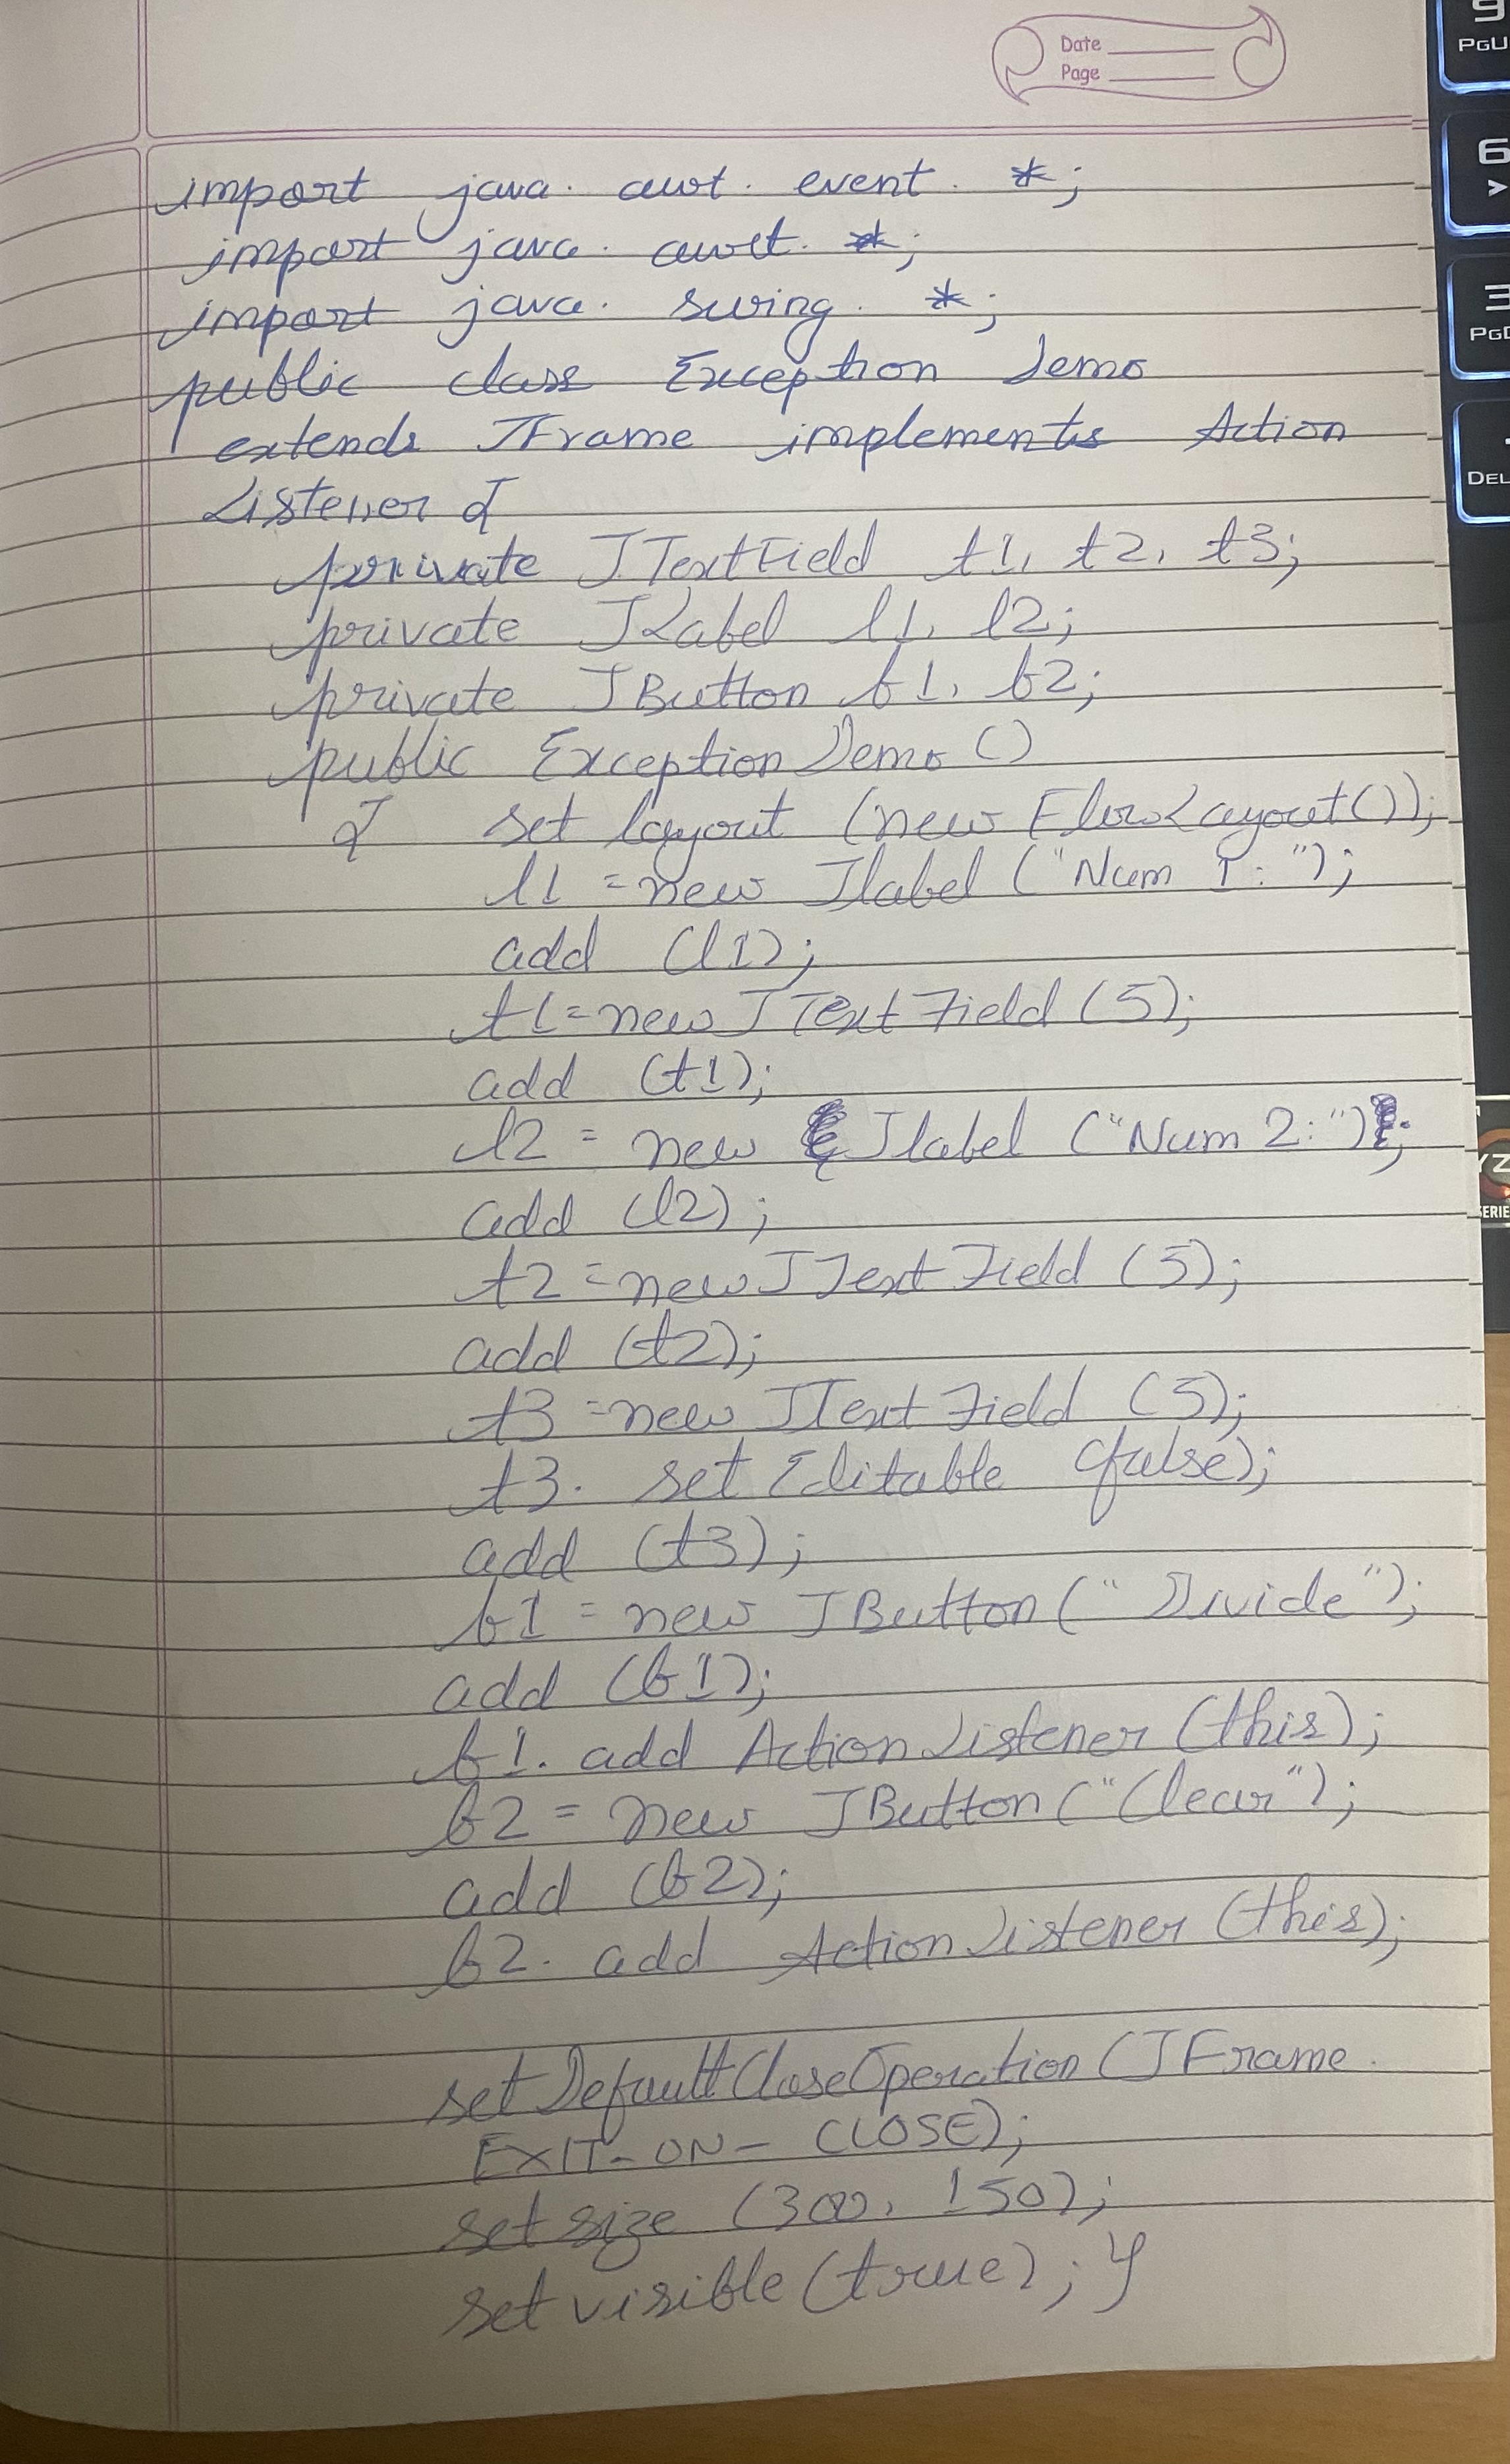 Date
Page
import java. awt. event. *;
import java. awt. *;
import java. swing. *;
public class Exception Demo
extends JFrame implements Action
Listener {
private JTextField t1, t2, t3;
private JLabel l1, l2;
private JButton b1, b2;
public ExceptionDemo ()
{ set layout (new FlowLayout());
l1 = new Jlabel ("Num 1: ");
add (l1);
t1 = new JTextField (5);
add (t1);
l2 = new Jlabel ("Num 2: ");
add (l2);
t2 = new JTextField (5);
add (t2);
t3 = new JTextField (5);
t3. set Editable (false);
add (t3);
b1 = new JButton (" Divide");
add (b1);
b1. add ActionListener (this);
b2 = new JButton ("Clear");
add (b2);
b2. add ActionListener (this);
setDefaultCloseOperation (JFrame.
EXIT_ON_ CLOSE);
set size (300, 150);
set visible (true); }
9
PGU
6
>
3
PGD
DEL
YZ
SERIE